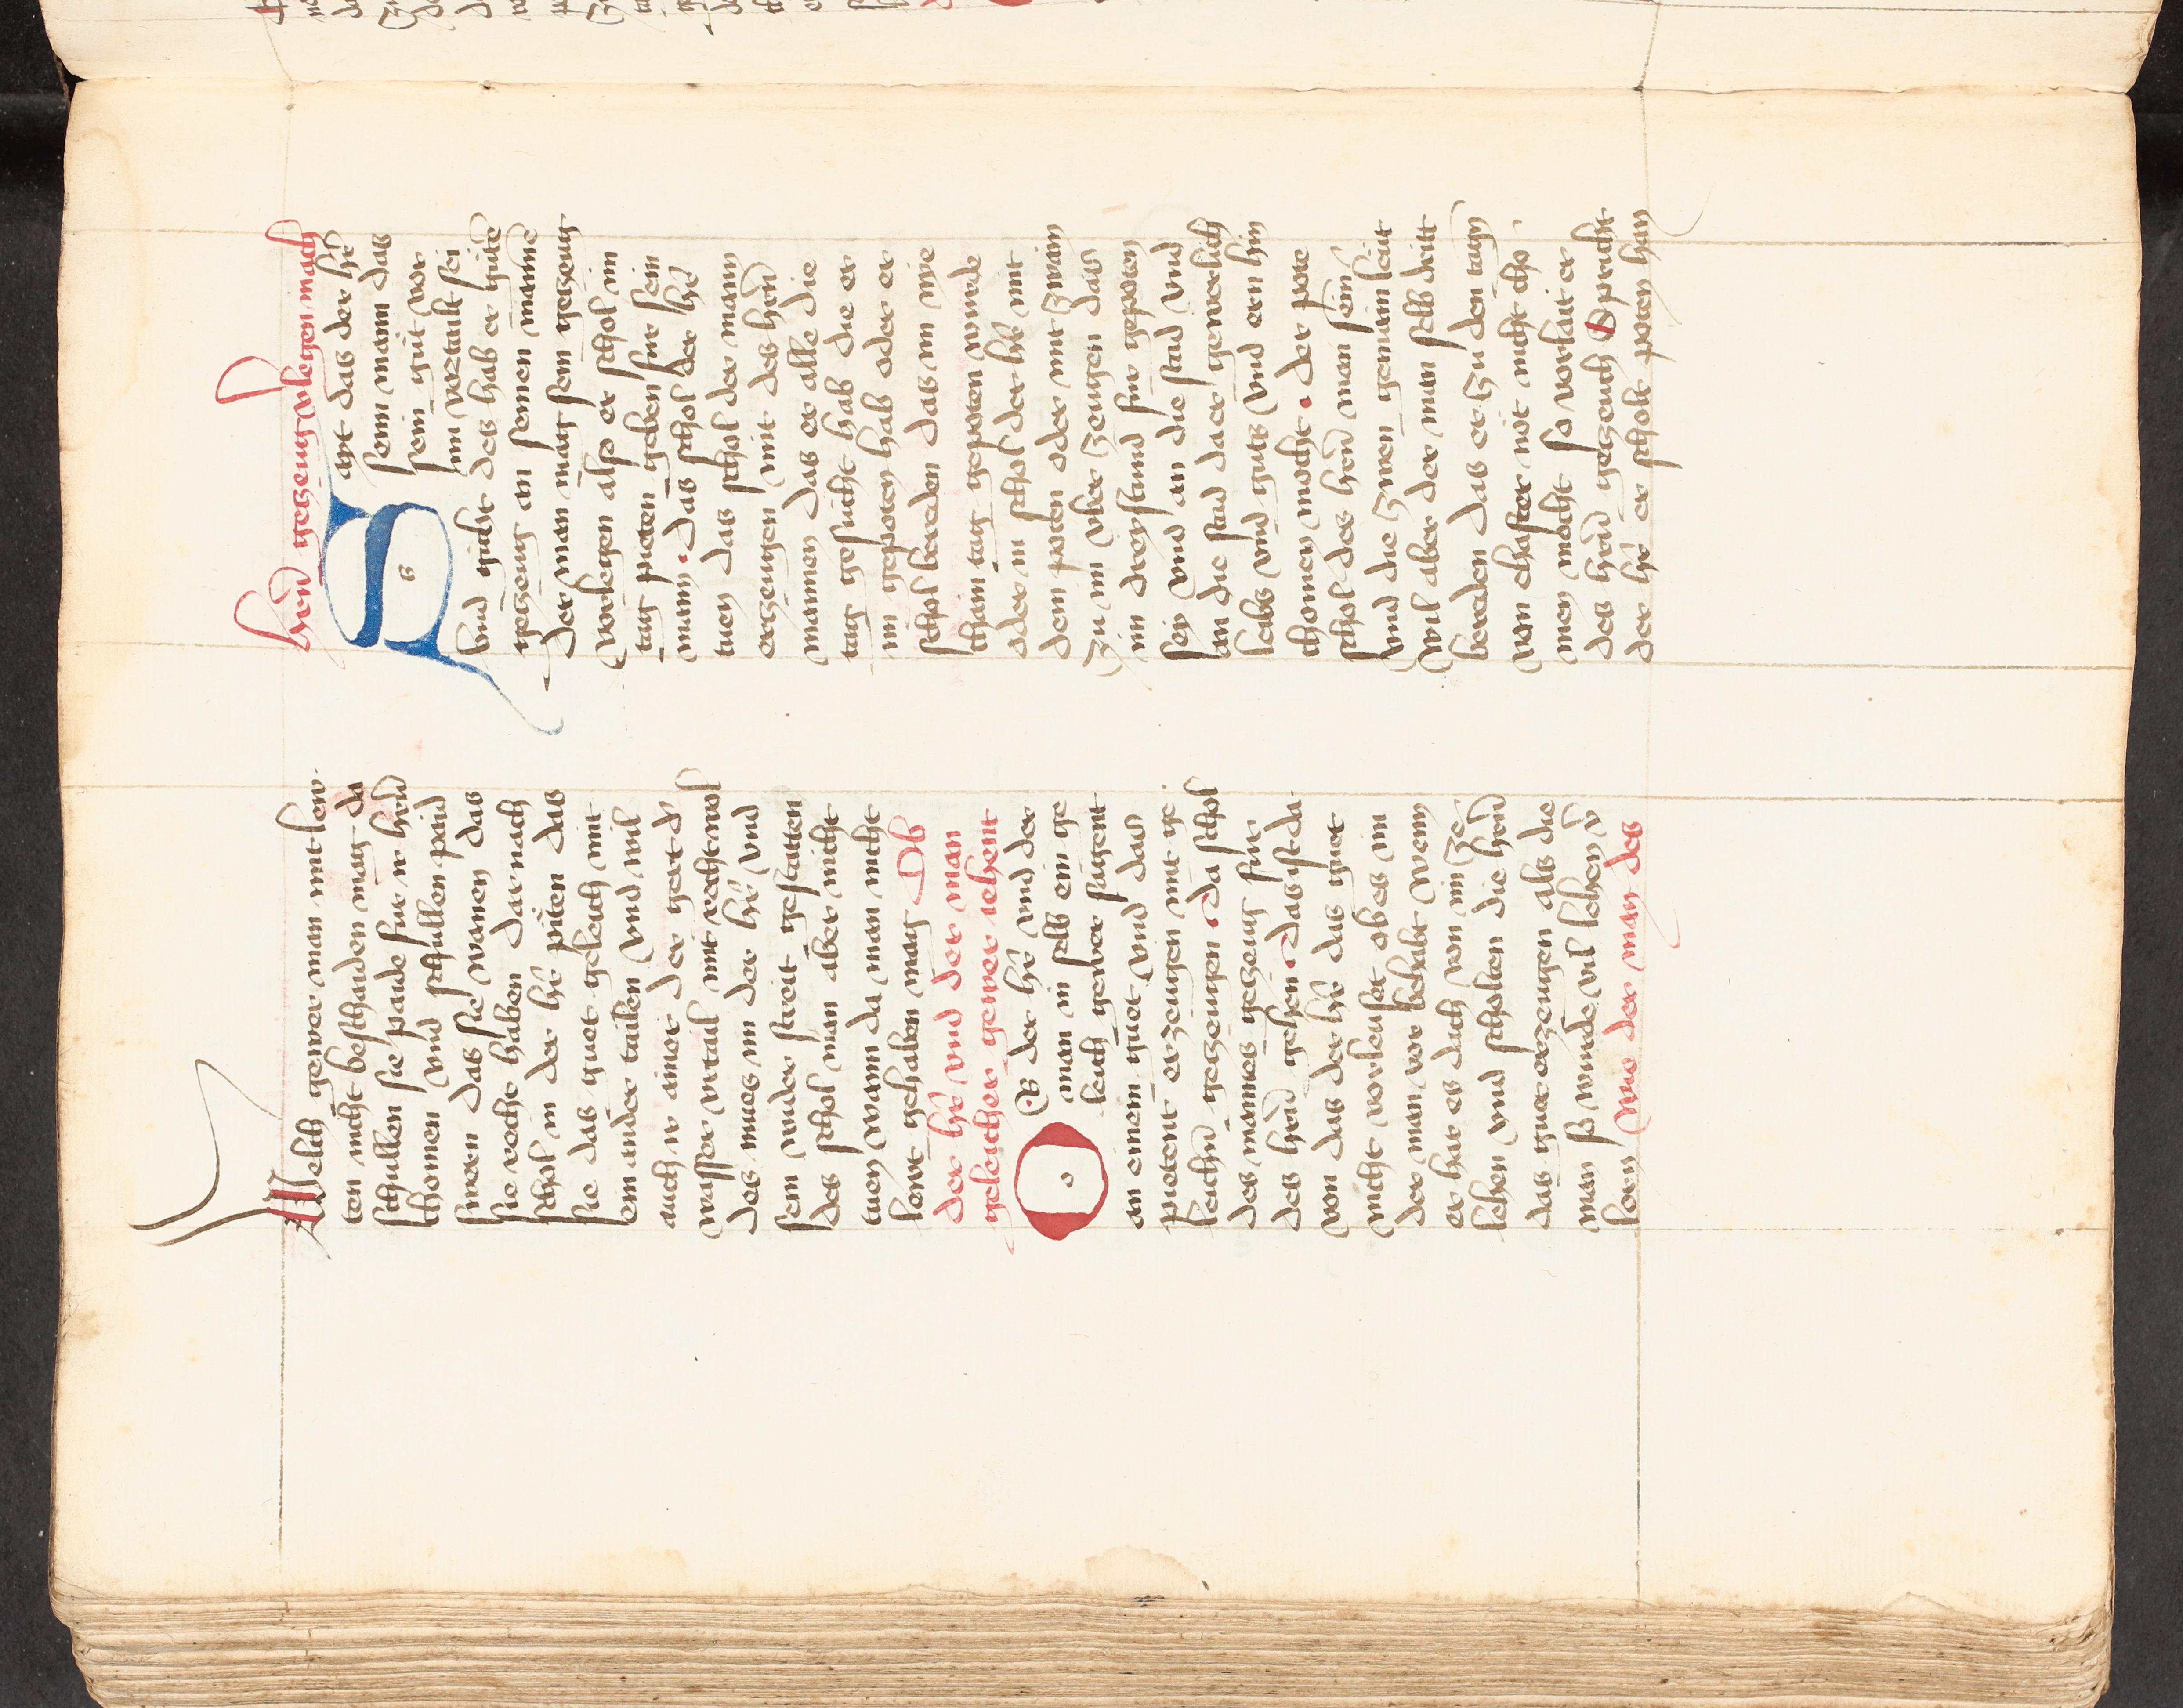 Welch gewer man mit lew-
ten nicht beschaiden mag da
schullen sie paide fur ir hern
chomen und schullen paid
sweren das sie wanen das
sie recht haben Dar nach
schol in der hr̄ pitten das
sie das guet geleich mit
ein ander tailen Vnd wil
auch ir ainer der gert d̄
wasser urtail mit recht wol
Des mues in der hr̄ vnd
sein under streit gestatten
Des schol man aber nicht
tuen wann da man nicht
lewt gehaben mag Ob
der hr̄ und der man
geleicher gewer iehent
OB der hr̄ und der
man in selb ein ge
leich gewer sagent
an einem guet Vnd das
pietent erzeugen mit ge-
leichn̄ gezeugen Da schol
des mannes gezeug fur
des hern̄ gehen Das ist da
von das der hr̄ das guet
nicht verleuset ob es im
der man vor behabt wenn
er hat es dach von im Ze
lehen und scholten die hern̄
das guet erzeugen als die
man so wurde vil lehen v̄
lorn Wie der man des
hern̄ gezeug vlegen mach
Sagt das der hr̄
seinn mann das
sein gut vor
im vertailt sei
Vnd gicht des hab er gute
gezeug an seinen manne
Der man mag sein gezeug
verlegen also er schol im
tag pieten geben fur sein
mann Das schol der hr̄
tuen Das schol der mann
erzeugen mit des hern̄
mannen das er alle die
tag gesucht hab die er
im gepoten hab oder er
schol bereden das im nie
chain tag gepoten wurde
oder in schol der hr̄ mit
dem poten oder mit zwain
Zu im vber zeugen das
im dreystund fur gepoten
sey Vnd an die stad Vnd
an die stad da er gewerlich
leibs vnd guts Vnd ern hin
chomen mocht Der pote
schol des hern̄ man sein
Vnd die zwen gemain leut
Wil aber der man selb dritt
bereden das er zu den tagn
von ehafter not nicht cho-
men mocht so verlait er
des hern̄ gezeuch Spricht
der hr̄ er scholt poten han